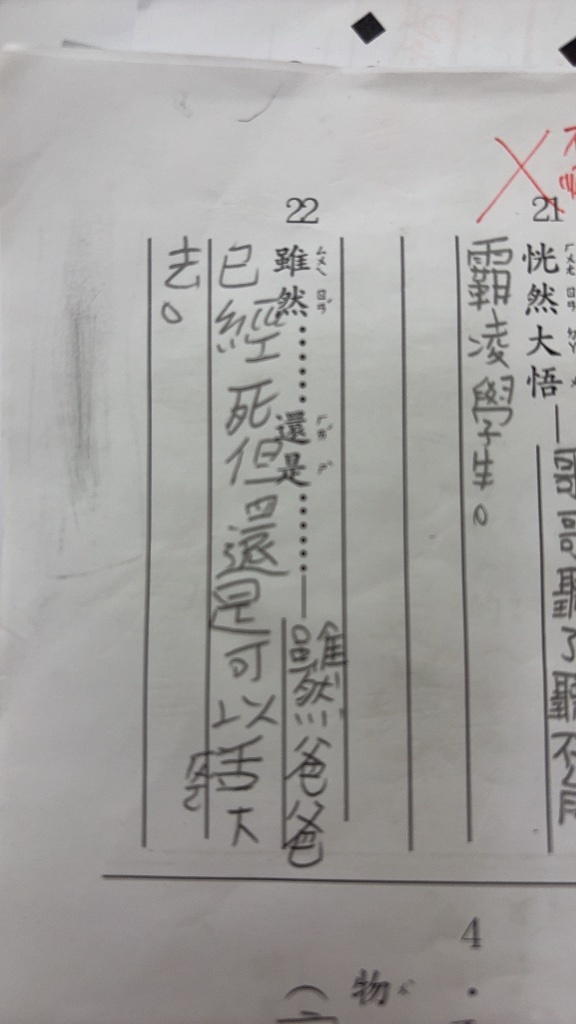 21 恍然大悟—哥哥聽了
霸凌學生。
22 雖然⋯⋯還是⋯⋯—雖然爸爸
已經死但還是可以活
去。
4
物